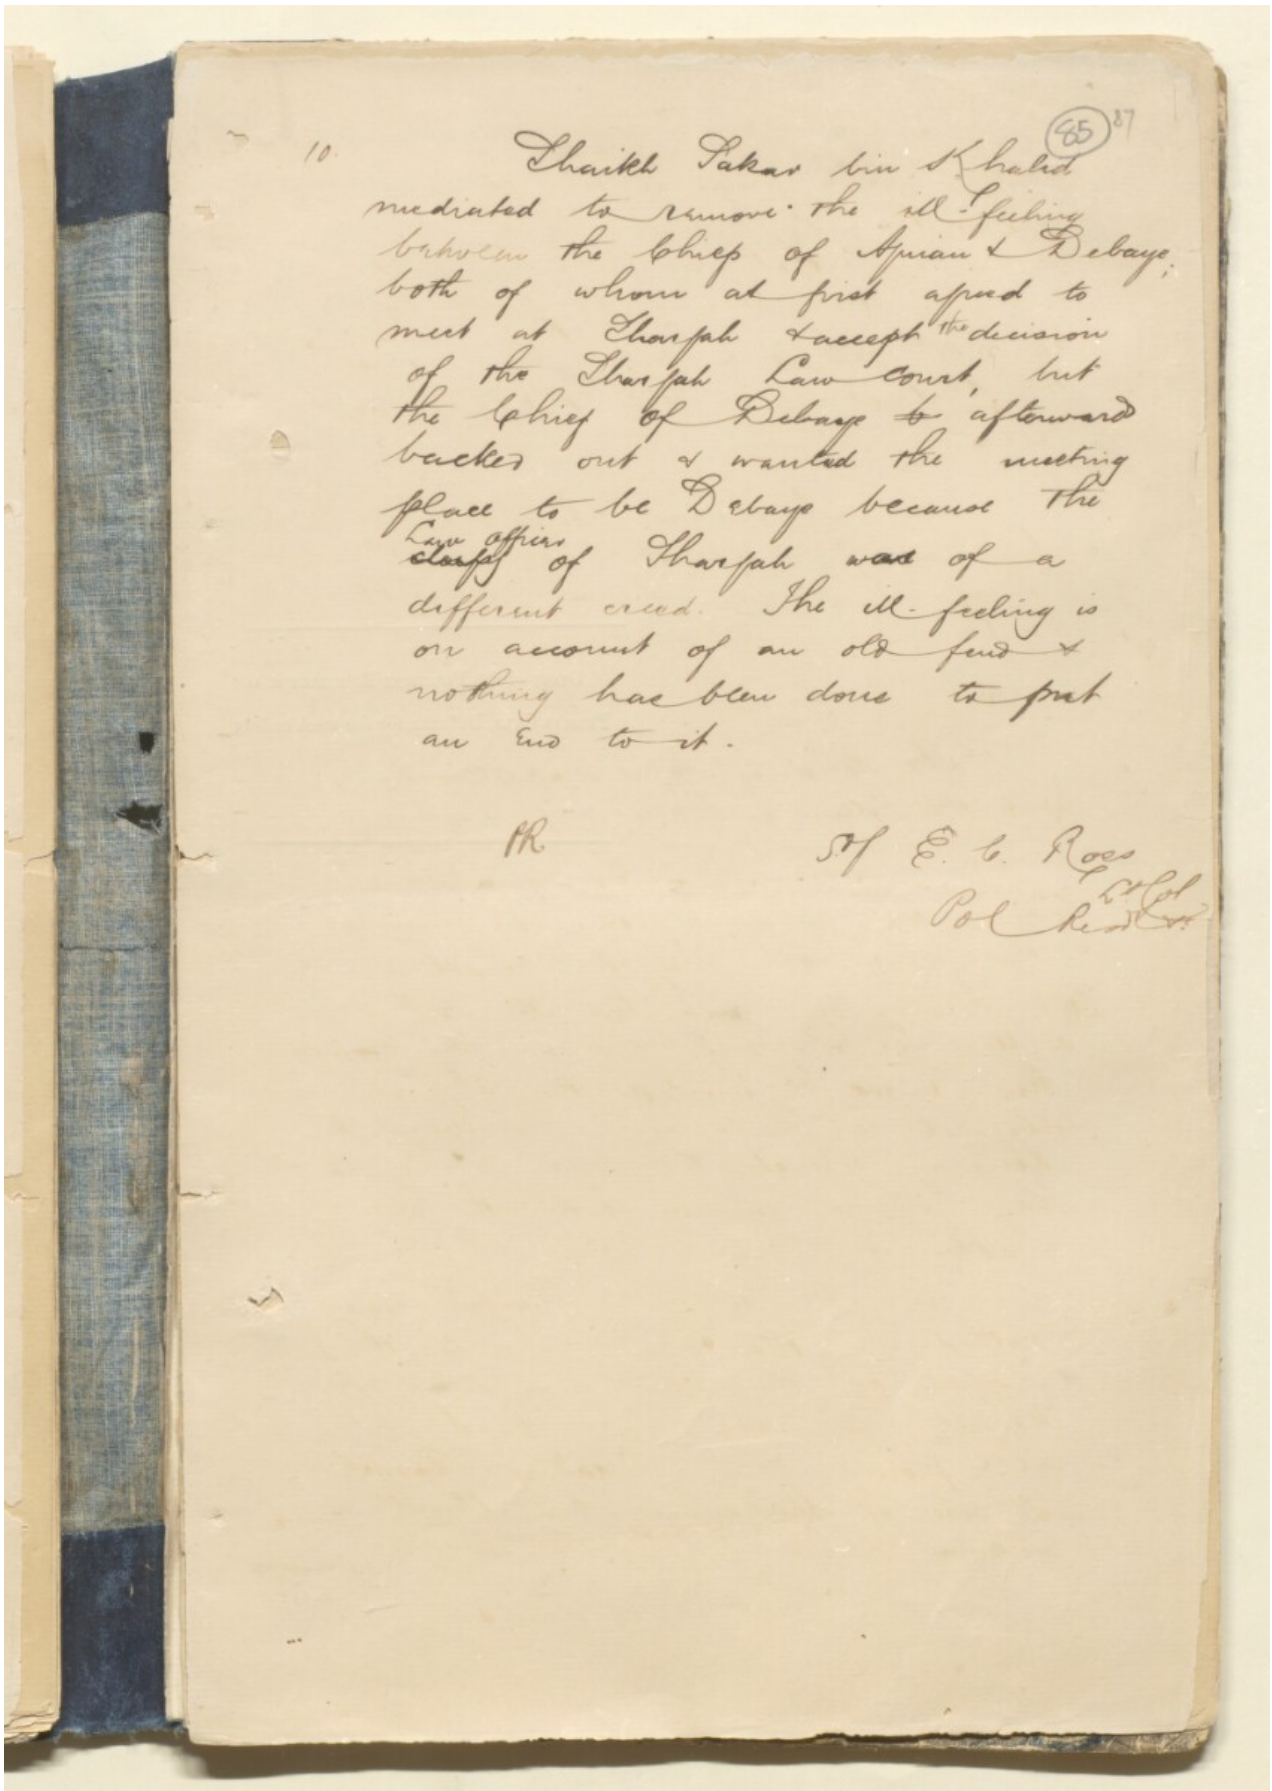 85 87
10. Shaikh Sakar bin Khalid
mediated to remove the ill-feeling
between the Chiefs of Ajman & Debaye;
both of whom at first agreed to
meet at Sharjah & accept the decision
of the Sharjah Law court, but
the Chief of Debaye to afterward
backed out & wanted the meeting
place to be Debaye because the
Law officer
of Sharjah was of a
different creed. The ill-feeling is
on account of an old feud &
nothing has been done to put
an end to it.
PR
Sd/ E. C. Ross
Lt Col
Pol Resdt